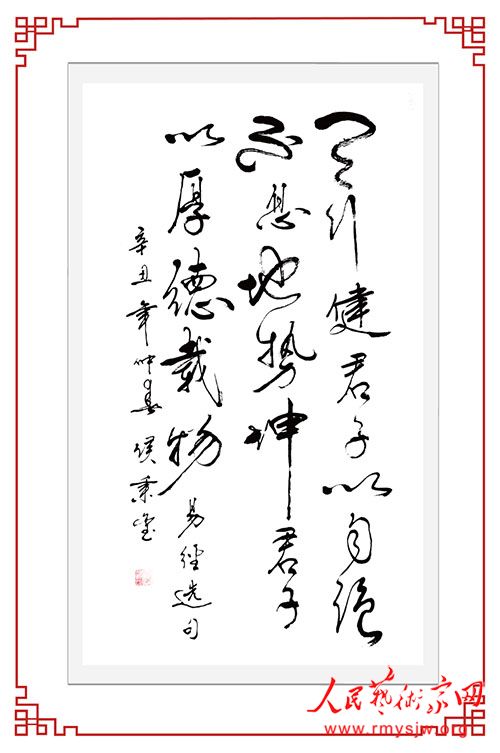 天行健君子以自强
不息地势坤君子
以厚德载物 易经选句
辛丑年仲 侯秉
人民藝術家网
www.rmysjw.org